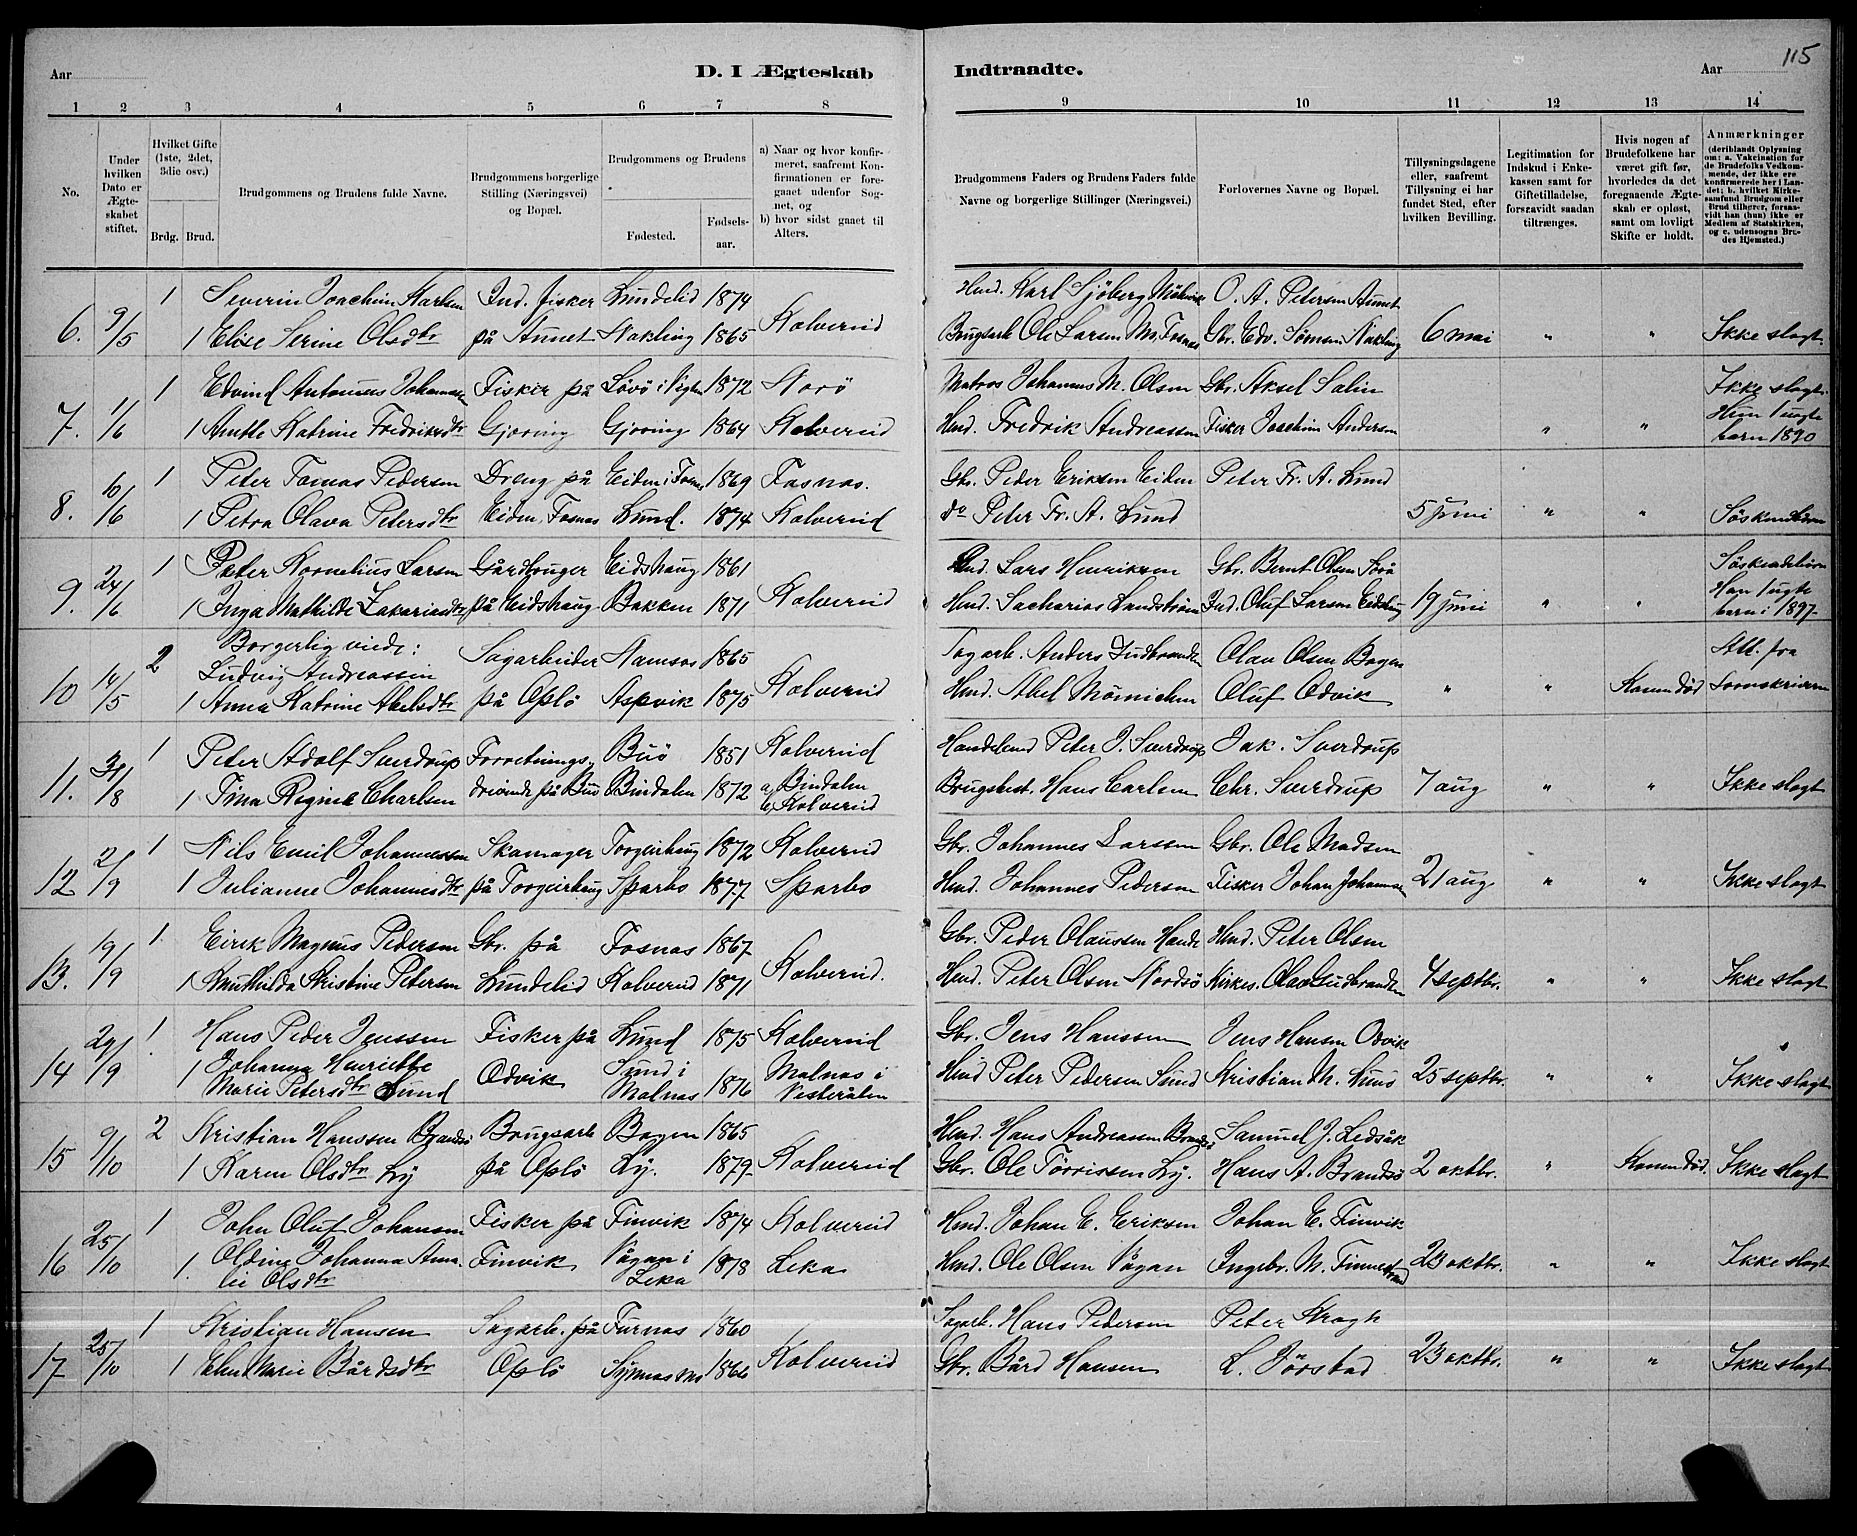 115
Aar
D. I Ægteskab
Indtraadte.
Aar
1 2 3 4 5 6 7 8 9 10 11 12 13 14
No.
Under hvilken Dato er Ægteskabet stiftet.
Hvilket Gifte (1ste, 2det, 3die osv.)
Brdg. Brud.
Brudgommens og Brudens fulde Navne.
Brudgommens borgerlige Stilling (Næringsvei) og Bopæl.
Brudgommens og Brudens
Fødested. Fødsels-aar.
a) Naar og hvor konfirmeret, saafremt Konfirmationen er foregaaet udenfor Sognet, og
b) hvor sidst gaaet til Alters.
Brudgommens Faders og Brudens Faders fulde Navne og borgerlige Stillinger (Næringsvei.)
Forlovernes Navne og Bopæl.
Tillysningsdagene eller, saafremt Tillysning ei har fundet Sted, efter hvilken Bevilling.
Legitimation for Indskud i Enkekassen samt for Giftetilladelse, forsaavidt saadan tiltrænges.
Hvis nogen af Brudefolkene har været gift før, hvorledes da det foregaaende Ægteskab er opløst, samt om lovligt Skifte er holdt.
Anmærkninger
(deriblandt Oplysning om: a. Vakcination for de Brudefolks Vedkommende, der ikke ere konfirmerede her i Landet; b. hvilket Kirkesamfund Brudgom eller Brud tilhører, forsaavidt han (hun) ikke er Medlem af Statskirken, og c. udensogns Brudes Hjemsted.)
1 Severin Joachim Karlsen Ind. fisker Lundelid 1874 Hmd. Karl Sjöberg O. A. Petersen Aunet
6. 9/5 1 Elise Serine Olsdtr på Aunet Nakling 1865 Kolvereid Brugsarb. Ole Larsen M, Fosnes Gbr. Edv. Nakling 6 mai " " Ikke slagt
1 Edvind Antonius Johannesen Fisker på Lovö i Vigten 1872 Nærö Matros Johannes M. Olsen Gbr. Aksel Salin Ikke slagt.
7. 11/6 1 Katrine Fredriksdtr Gjerring Gjerring 1864 Kolvereid Hmd. Fredrik Andreassen Fisker Joachim Andersen " " Hun 1 uægte barn 1890
1 Peter Tomas Pedersen Dreng på Eiden i Fosnes 1869 Fosnæs. Gbr. Peder Eriksen Eiden Peter Fr. A. Lund
8. 10/6 1 Petra Olava Petersdtr Eiden, Fosnes Lund. 1874 Kolvereid do Peter Fr. A. Lund 5 juni " " Söskenbörn
1 Peter Kornelius Larsen Gårdbruger Eidshaug 1861 Lars Henriksen Gbr. Bernt Olsen Söskendebörn
9. 24/6 1 Inga Mathilde Zakariasdtr på Eidshaug Bakken 1871 Kolvereid Hmd. Sacharias Sandström Ind. Oluf Larsen Eidshaug 19 juni " " Han 1 uægte barn i 1897
Borgerlig viede:
2 Ludvig Andreassen Sagarbeider Namsos 1865 Sagarb. Anders Gudbrandsen Olav Olsen Bogen Att. fra
10 14/5 1 Anna Katrine Abelsdtr på Oplö Aspvik 1875 Kolvereid Hmd. Abel Mönichen Oluf Odvik " " Konen död Sorenskriveren
1 Peter Adolf Sverdrup Forretnings- Buö 1851 Kolvereid Handelsmd Peter J. Sverdrup Jak. Sverdrup
11. 31/8 1 Tina Regine Charlsen drivende på Buö Bindalen 1872 a, Bindalen b, Kolvereid Brugsbest. Hans Carlsen Chr. Sverdrup 7 aug " " Ikke slagt
1 Nils Emil Johannessen Skomager Torgeirhaug 1872 Kolvereid Gbr. Johannes Larssen Gbr. Ole Madsen
12 2/9 1 Julianne Johannesdtr på Torgeirhaug Sparbo 1877 Sparbo Hmd. Johannes Pedersen Fisker Johan Johansen 21 aug " " Ikke slagt
1. Eirik Magnus Pedersen Gbr. på Fosnas 1867 Gbr. Peder Olaussen Hmd. Peter Olsen
13. 19/9 1 Kristine Petersen Lundelid Kolvereid 1871 Kolvereid. Hmd. Peter Olsen Nordsö Kirkes. Olav Gudbrandsen 4 septbr. " " Ikke slagt
1. Hans Peder Jenssen Fisker på Lund 1875 Kolvereid Gbr. Jens Hanssen Jens Hansen Odvik
14 29/9 1 Johanna Henriette Marie Petersdtr Sund Odvik Sund i Malnas 1876 Malnas i Vesterålen Hmd Peter Pedersen Sund Kristian M. 25 septbr. " " Ikke slagt
2 Kristian Hanssen Brandsö Brugsarb Bogen 1865 Hmd. Hans Andreasen Brandsö Samuel J. Ledsåk
15 9/10 1 Karen Olsdtr Ly på Oplö Ly. 1879 Kolvereid Gbr. Ole Törrissen Ly. Hans A. Brandsö 2 oktbr. " Konen död. Ikke slagt
1 John Oluf Johansen Fisker på Finvik 1874 Kolvereid Hmd. Johan E. Eriksen Johan E. Finvik
16 25/10 1. Oldine Johanna Amalie Olsdtr Finvik Vågan i Leka 1878 Leka Hmd. Ole Olsen Vågan Ingebr. M. Finnestrand 23 oktbr. " " Ikke slagt
1 Kristian Hansen Sagarb. på Furnas 1860 Sagarb. Hans Pedersen Peter Krogh
17 25/10 1 Elen Marie Bårdsdtr Oplö 1866 Kolvereid Gbr. Bård Hansen L. Jörstad 23 oktbr. " " Ikke slagt